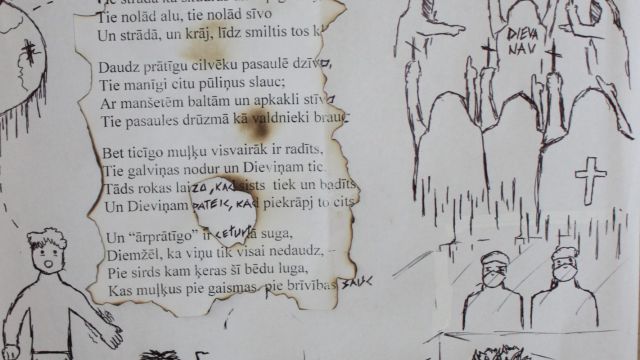 Tie strādā kā skudras
Tie nolād alu, tie nolād sīvo
Un strādā, un krāj, līdz smiltis tos k
Daudz prātīgu cilvēku pasaulē dzīvo,
Tie manīgi citu pūliņus slauc;
Ar manšetēm baltām un apkakli stīvo
Tie pasaules drūzmā kā valdnieki brauc
Bet ticīgo muļķu visvairāk ir radīts,
Tie galviņas nodur un Dieviņam tic.
Tāds rokas laiZA, KAS sists tiek un badīts
Un Dieviņam PATEIC, KAD piekrāpj to cits
Un “ārprātīgo” ir CETURTā suga,
Diemžēl, ka viņu tik visai nedaudz, –
Pie sirds kam ķeras šī bēdu luga,
Kas muļķus pie gaismas, pie brīvības SAUC
DIEVA
NAV